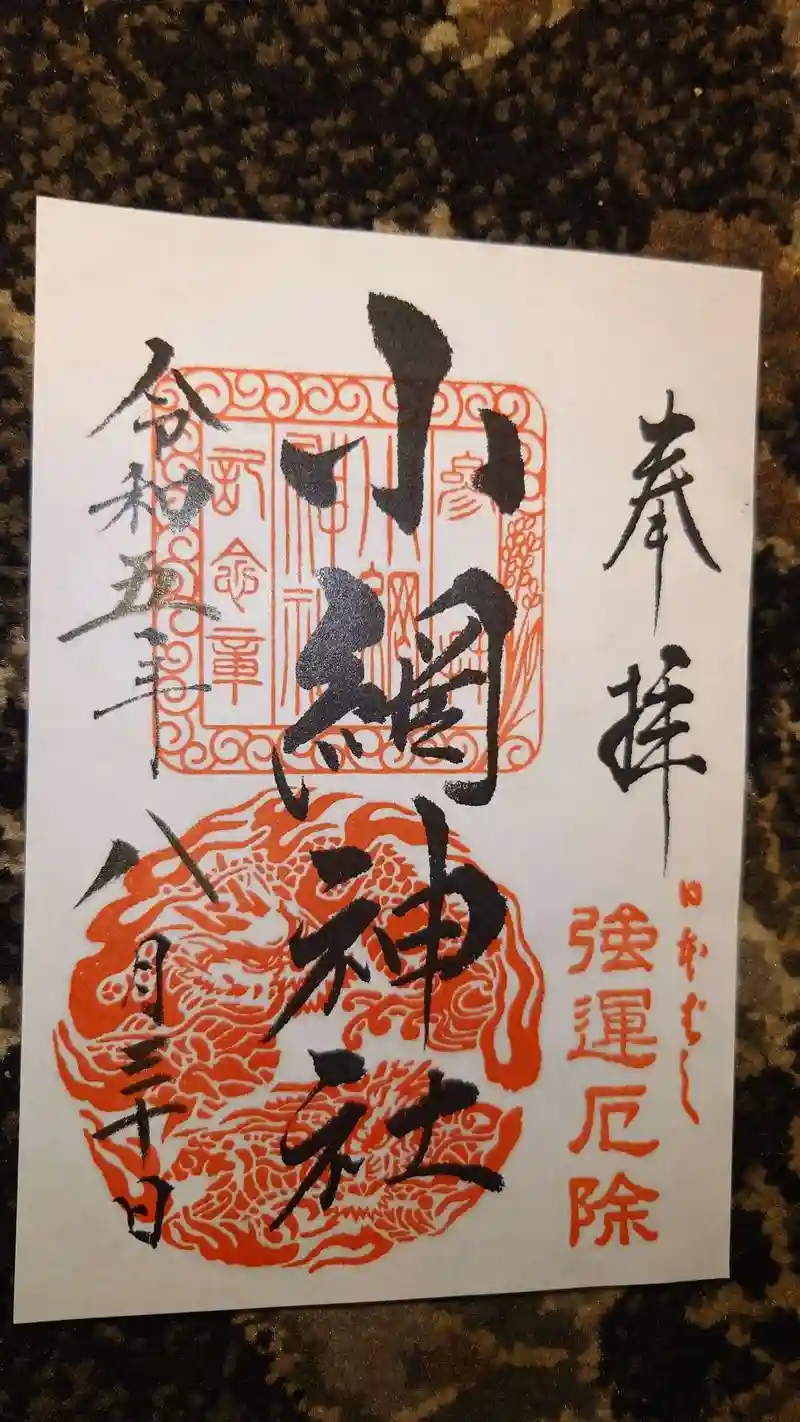 奉拝
日本ばし
強運厄除
小網神社
参拝
小網
神社
記念章
令和五年八月三十日